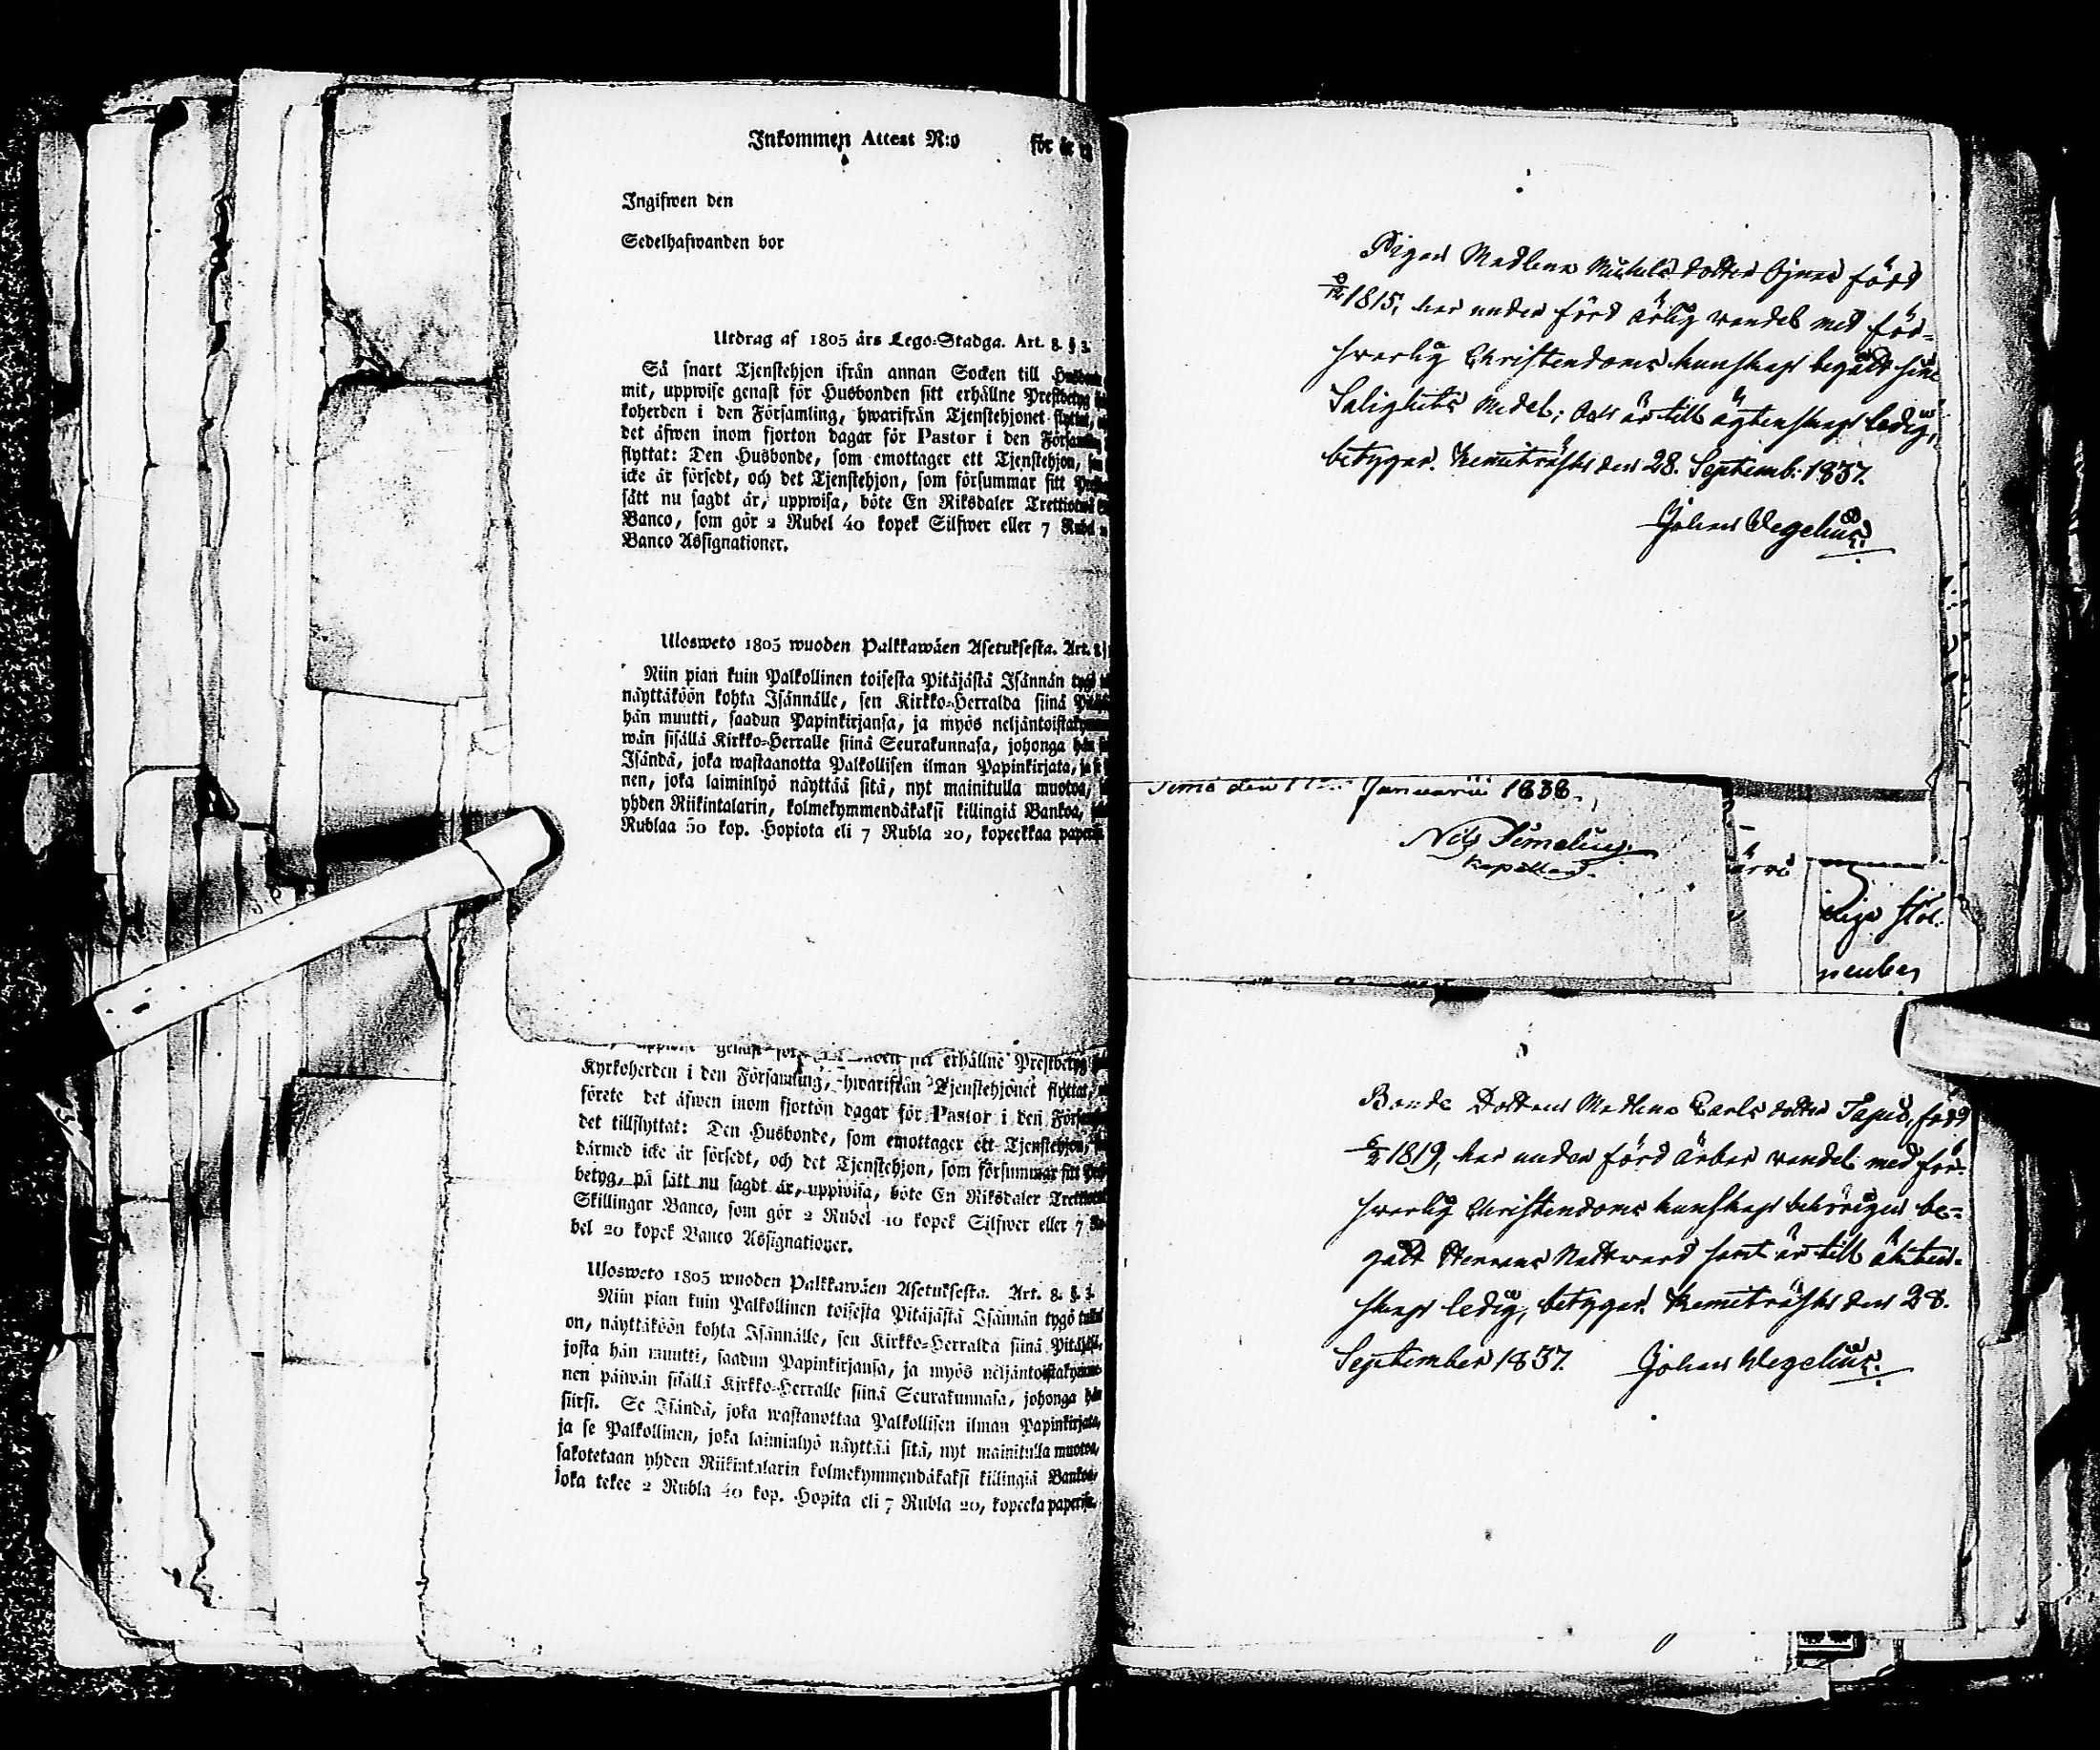 Inkommen Attest N:o för år 18
Ingifwen den
Sedelhafwanden bor
Utdrag af 1805 års Lego-Stadga. Art. 8. § 3.
Så snart Tjenstehjon ifrån annan Socken till
mit, uppwise genast för Husbonden sitt erhållne Prestbetyg
koherden i den Församling, hwarifrån Tjenstehjonet flyttat,
det äfwen inom fjorton dagar för Pastor i den Församling
flyttat: Den Husbonde, som emottager ett Tjenstehjon,
icke är försedt, och det Tjenstehjon, som försummar sitt
sätt nu sagdt är, uppwisa, böte En Riksdaler Trettiotwå
Banco, som gör 2 Rubel 40 kopek Silfwer eller 7 Rubel
Banco Assignationer.
Ulosweto 1805 wuoden Palkkawäen Asetuksesta. Art.
Niin pian kuin Palkollinen toisesta Pitäjästä Isännän tygö
näyttäköön kohta Isännälle, sen Kirkko-Herralda siinä
hän muutti, saadun Papinkirjansa, ja myös
wän sisällä Kirkko-Herralle siinä Seurakunnasa, johonga hän
Isändä, joka wastaanotta Palkollisen ilman Papinkirjata,
nen, joka laiminlyö näyttää sitä, nyt mainitulla muotoa,
yhden Riikintalarin, kolmekymmendäkaksi killingiä Bankoa,
Rublaa 50 kop. Hopiota eli 7 Rubla 20, kopeekkaa
genast erhållne Prestbetyg
Kyrkoherden i den Församling, hwarifrån Tjenstehjonet flyttat,
förete det äfwen inom fjorton dagar för Pastor i den
det tillflyttat: Den Husbonde, som emottager ett Tjenstehjon,
därmed icke är försedt, och det Tjenstehjon, som försummar sitt
betyg, på sätt nu sagdt är, uppwisa, böte En Riksdaler
Skillingar Banco, som gör 2 Rubel 40 kopek Silfwer eller 7
bel 20 kopek Banco Assignationer.
Ulosweto 1805 wuoden Palkkawäen Asetuksesta. Art. 8. §. 3.
Niin pian kuin Palkollinen toisesta Pitäjästä Isännän tygö
on, näyttäköön kohta Isännälle, sen Kirkko-Herralda siinä
josta hän muutti, saadun Papinkirjansa, ja myös neljäntoistakymme-
nen päiwän sisällä Kirkko-Herralle siinä Seurakunnasa, johonga hän
siirsi. Se Isändä, joka wastanottaa Palkollisen ilman Papinkirjata,
ja se Palkollinen, joka laiminlyö näyttää sitä, nyt mainitulla muotoa,
sakotetaan yhden Riikintalarin kolmekymmendäkaksi killingiä Bankoa,
joka tekee 2 Rubla 40 kop. Hopita eli 7 Rubla 20, kopeeka
Pigan Madlena Michels dotter Ojnas född
1815, har under förd ärlig vandel med för-
svarlig Christendoms kunskap begått sine
Salighets medel; Och är till ägtenskap ledig,
betygar. Kemiträsk den 28. Septemb: 1837.
Johan Wegelius.
Simo den Januarii 1838.
Nils Simelius
Kapellan.
Bonde Dottren Madlena Carls dotter Tapio, född
1819, har under förd ärbar vandel med för-
svarlig Christendoms kunskap behörigen be-
gått Herrans Nattward samt är till äkten-
skap ledig, betygar. Kemiträsk den 28.
September 1837. Johan Wegelius.